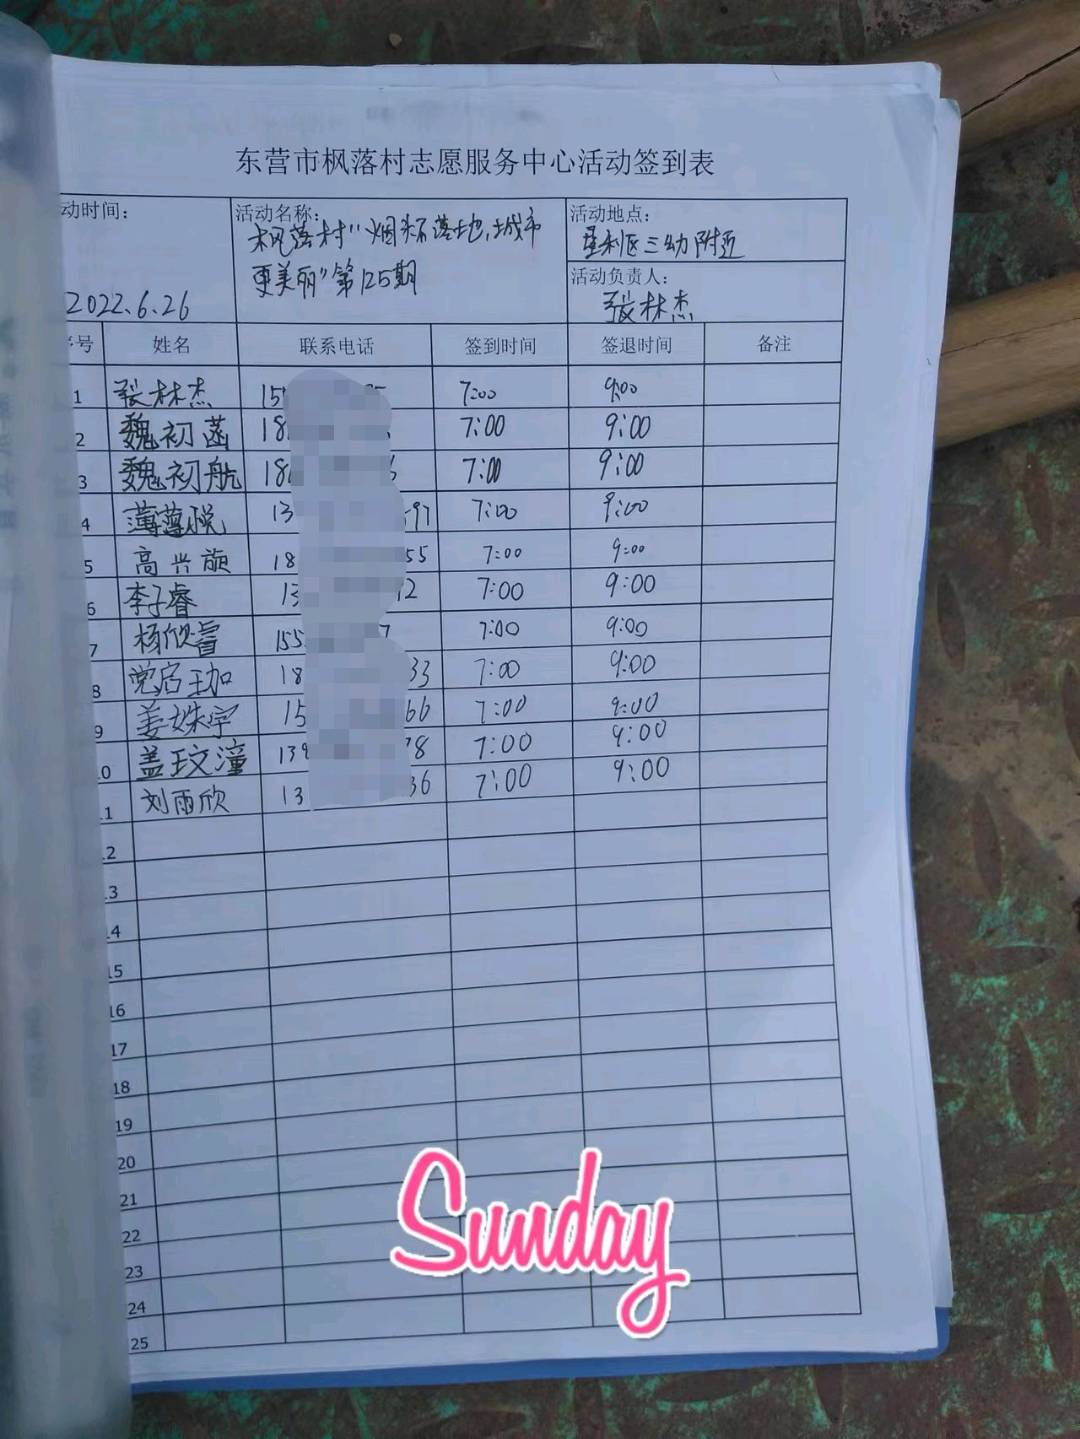 东营市枫落村志愿服务中心活动签到表
动时间：
2022.6.26
活动名称：
枫落村"烟头不落地，城市
更美丽"第125期
活动地点：
垦利区三幼附近
活动负责人：
张林杰
序号 姓名 联系电话 签到时间 签退时间 备注
1 张林杰 15 7:00 9:00
2 魏初菡 18 7:00 9:00
3 魏初航 18 7:00 9:00
4 薄薄悦 13 597 7:00 9:00
5 高兴旋 18 55 7:00 9:00
6 李子睿 13 2 7:00 9:00
7 杨欣睿 155 7 7:00 9:00
8 党启珈 18 33 7:00 9:00
9 姜姝宇 15 66 7:00 9:00
10 盖玟潼 139 78 7:00 9:00
11 刘雨欣 13 36 7:00 9:00
12
13
14
15
16
17
18
19
20
21
22
23
24
25
Sunday